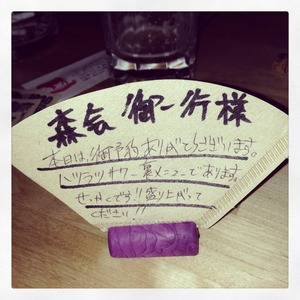 森会 御一行様
本日は、御予約ありがとうございます。
ハツラツサワー裏メニューであります。
せっかくです!!盛り上がって
ください!!